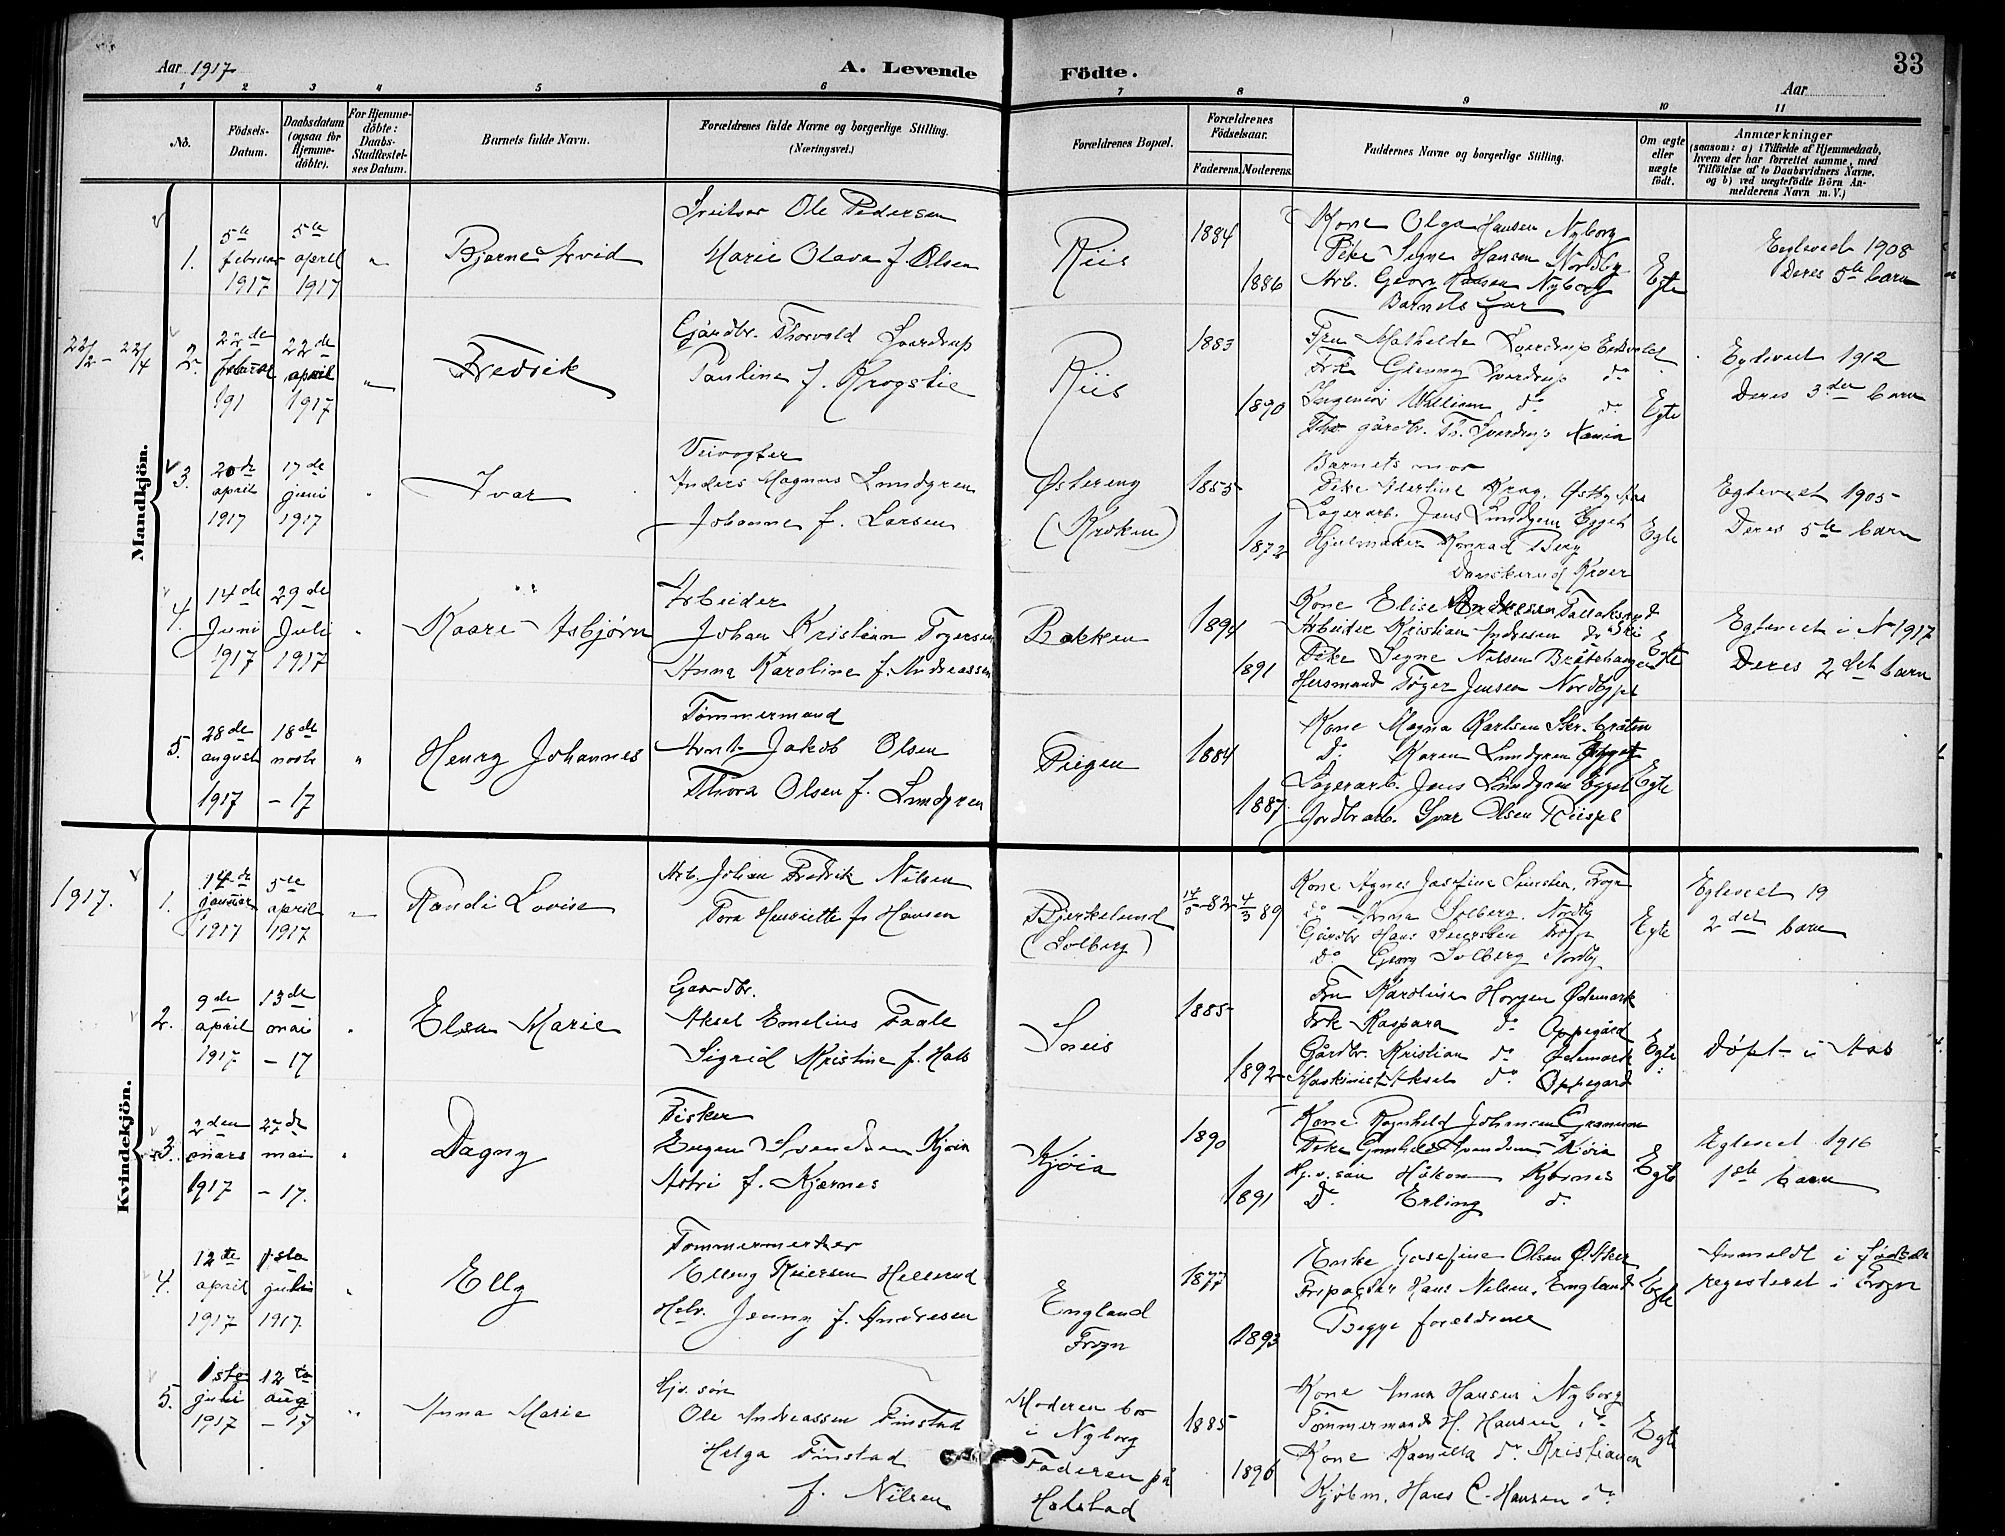 33
Aar 1917
A. Levende Födte.
Aar
1 2 3 4 5 6 7 8 9 10 11
No.
Födsels-Datum.
Daabsdatum (ogsaa for Hjemmedöbte).
For Hjemmedöbte: Daabs-Stadfæstelses Datum.
Barnets fulde Navn.
Forældrenes fulde Navne og borgerlige Stilling.
(Næringsvei.)
Forældrenes Bopæl.
Forældrenes Födselsaar.
Faderens. Moderens.
Faddernes Navne og borgerlige Stilling.
Om ægte eller uægte födt.
Anmærkninger
(saasom: a) i Tilfælde af Hjemmedaab,
hvem der har forrettet samme, med
Tilföielse af to Daabsvidners Navne,
og b) ved uægtefödte Börn Anmelderens Navn m. V.)
Mandkjön.
1.
5te februar 1917
5te april 1917
"
Bjarne Arvid
Ole Pedersen
Marie Olava f. Olsen
Riis
1884
1886
Kone Olga Hansen Nyborg
Pike Signe Hansen Nordby
Arb. Georg Hansen Nyborg
Barnets far
Egte
Egteviet 1908
Deres 5te barn
22/2 - 22/4
2.
22de februar 191
22de april 1917
"
Fredrik
Gårdbr. Thorvald Sverdrup
Pauline f. Krogstie
Riis
1883
1890
Fru Mathilde Sverdrup
Frk Sverdrup do
Ingeniør William do do
gårdbr. Th. Sverdrup
Egte
Egteviet 1912
Deres 3die barn
3.
20de april 1917
17de juni 1917
"
Ivar
Veivogter
Anders Magnus Lundgren
Johanne f. Larsen
Østereng
(Kroken)
1855
1872
Barnets mor
Pike Krag,
Lagerarb. Jens Lundgren Egget
Hjulmaker Konrad Berg
Danskerud Kroer
Egte
Egteviet 1905
Deres 5te barn
4.
14de Juni 1917
29de Juli 1917
"
Kaare Asbjørn
Arbeider
Johan Kristian Togersen
Anna Karoline f. Andreassen
Bakken
1894
1891
Kone Elise Andresen
Arbeider Kristian Andresen do Ski
Pike Signe Nilsen Bråtehaugen
Hersmand Tøger Jensen Nordbypl
Egte
Egteviet i N 1917
Deres 2det barn
5.
28de august 1917
18de novbr - 17
"
Henry Johannes
Tømmermand
Arnt Jakob Olsen
Thora Olsen f. Lundgren
Piegen
1884
1887
Kone Magna Karlsen
do Karen Lundgren Egget
Lagerarb. Jens Lundgren Egget
Jordbrarb. Ivar Olsen Riispl
Egte
Kvindekjön.
1917.
1.
14de januar 1917
5te april 1917
"
Randi Lovise
Arb. Johan Fredrik Nilsen
Tora Henriette f. Hansen
Bjerkelund
(Solberg)
14/5-82
4/3 89
Kone Agnes Josefine Frogn
do Anna Solberg, Nordby
Gårdbr Hans Frogn
do Georg Solberg Nordby
Egte
Egteviet 19
2det barn
2.
9de april 1917
13de mai - 17
"
Elsa Marie
Gaardbr.
Aksel Emelius Faale
Sigrid Kristine f. Hals
Sneis
1885
1892
Fru Karoline Horgen Ødemark
Frk Kaspara do Oppegård
Gårdbr. Kristian do Ødemark
Maskinist Aksel do Oppegård
Egte
Døpt i Aas
3.
2den mars 1917
27de mai - 17.
"
Dagny
Fisker
Eugen Svendsen Kjøia
Astri f. Kjærnes
Kjøia
1890
1891
Kone Ragnhild Johansen
Pike Gunhild Svendsen Kjøia
Gj.v.søn Håkon Kjærnes
Do Erling do
Egte
Egteviet 1916
1ste barn
4.
12te april 1917
1ste juli 1917.
"
Elly
Tømmermerker
Elling Hellerud
Helv. Jenny f. Andresen
England
Frogn
1877
1893
Enke Josefine Olsen
Forpagter Hans Nilsen, England
Begge foreldrene
Egte
Anmeldt i fødsels
registeret i Frogn
5.
1ste juli 1917
12te aug - 17
"
Anna Marie
Gjv. søn
Ole Andreassen Finstad
Helga Finstad
f. Nilsen
Moderen bor
i Nyborg
Faderen på
Holstad
1885
1896
Kone Anna Hansen Nyborg
Tømmermand H. Hansen do
Kone Kamilla do Kristiania
Kjøbm. Hans C. Hansen do
Egte